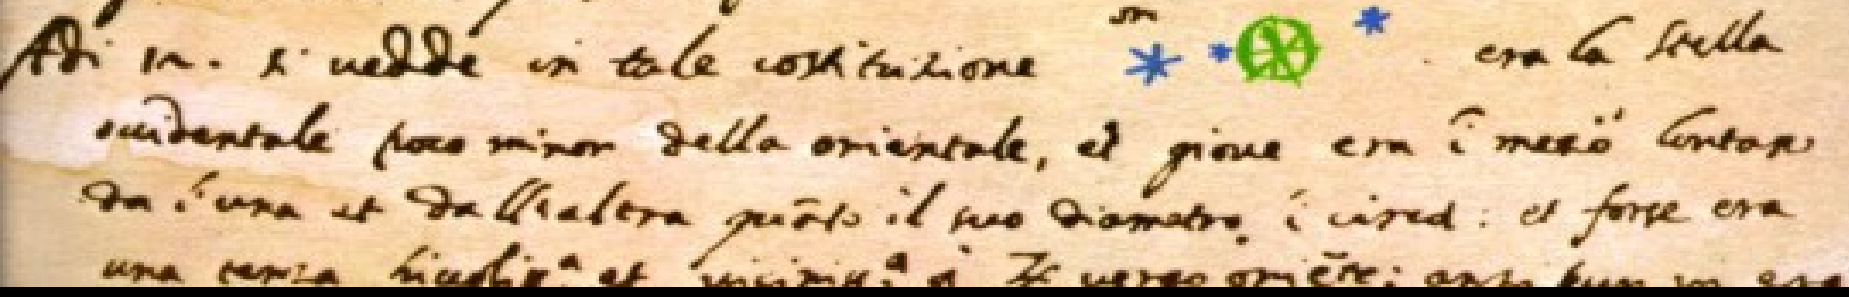 Adi 14. si vedde in tale costituzione era la stella
occidentale poco minor della orientale, et giove era ī mezō lontano
da l'una et dall'altra quāto il suo diametro, ī circa: et forse era
una terza et à ♃ verso oriēte; anzi pur